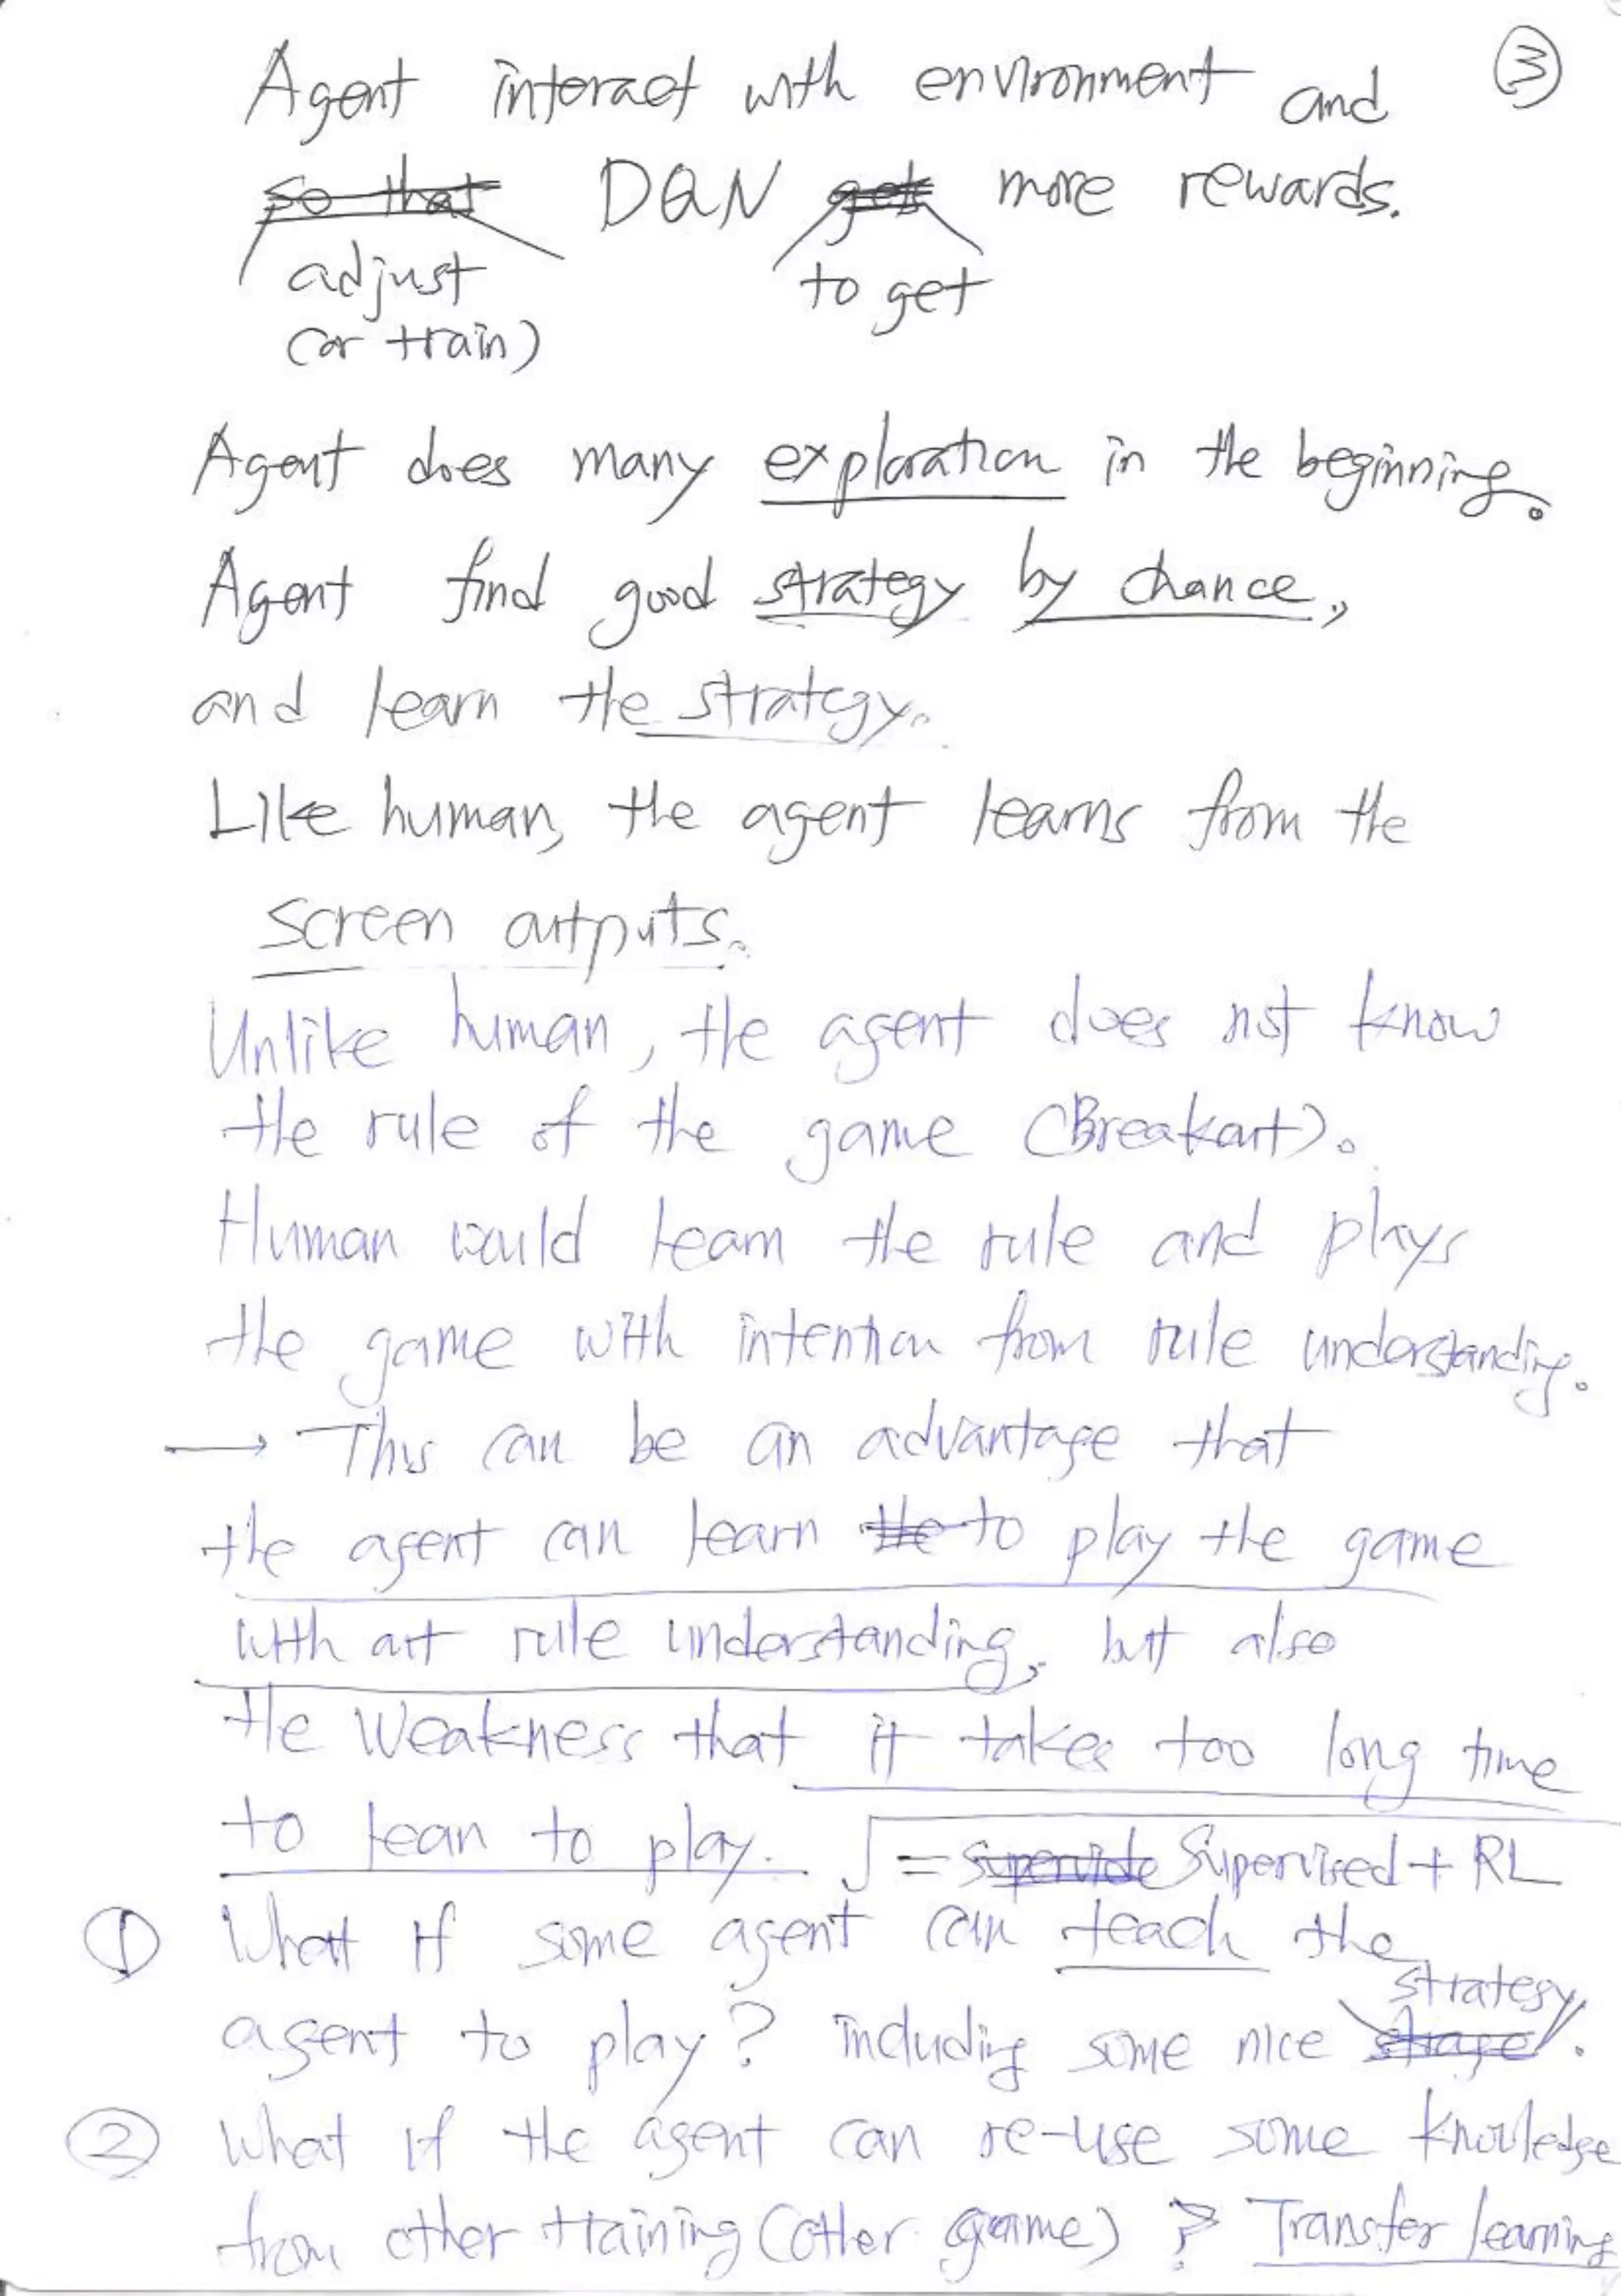 ③
Agent interact with environment and
so that DQN gets more rewards.
adjust to get
(or train)
Agent does many exploration in the beginning.
Agent find good strategy by chance,
and learn the strategy.
Like human, the agent learns from the
screen outputs.
Unlike human, the agent does not know
the rule of the game (Breakout).
Human would learn the rule and plays
the game with intention from rule understanding.
→ This can be an advantage that
the agent can learn the to play the game
with out rule understanding, but also
the weakness that it takes too long time
to lean to play.
= supervide Supervised + RL
① What if some agent can teach the
strategy
agent to play? including some nice strage.
② What if the agent can re-use some knowledge
from other training (other game)? Transfer learning